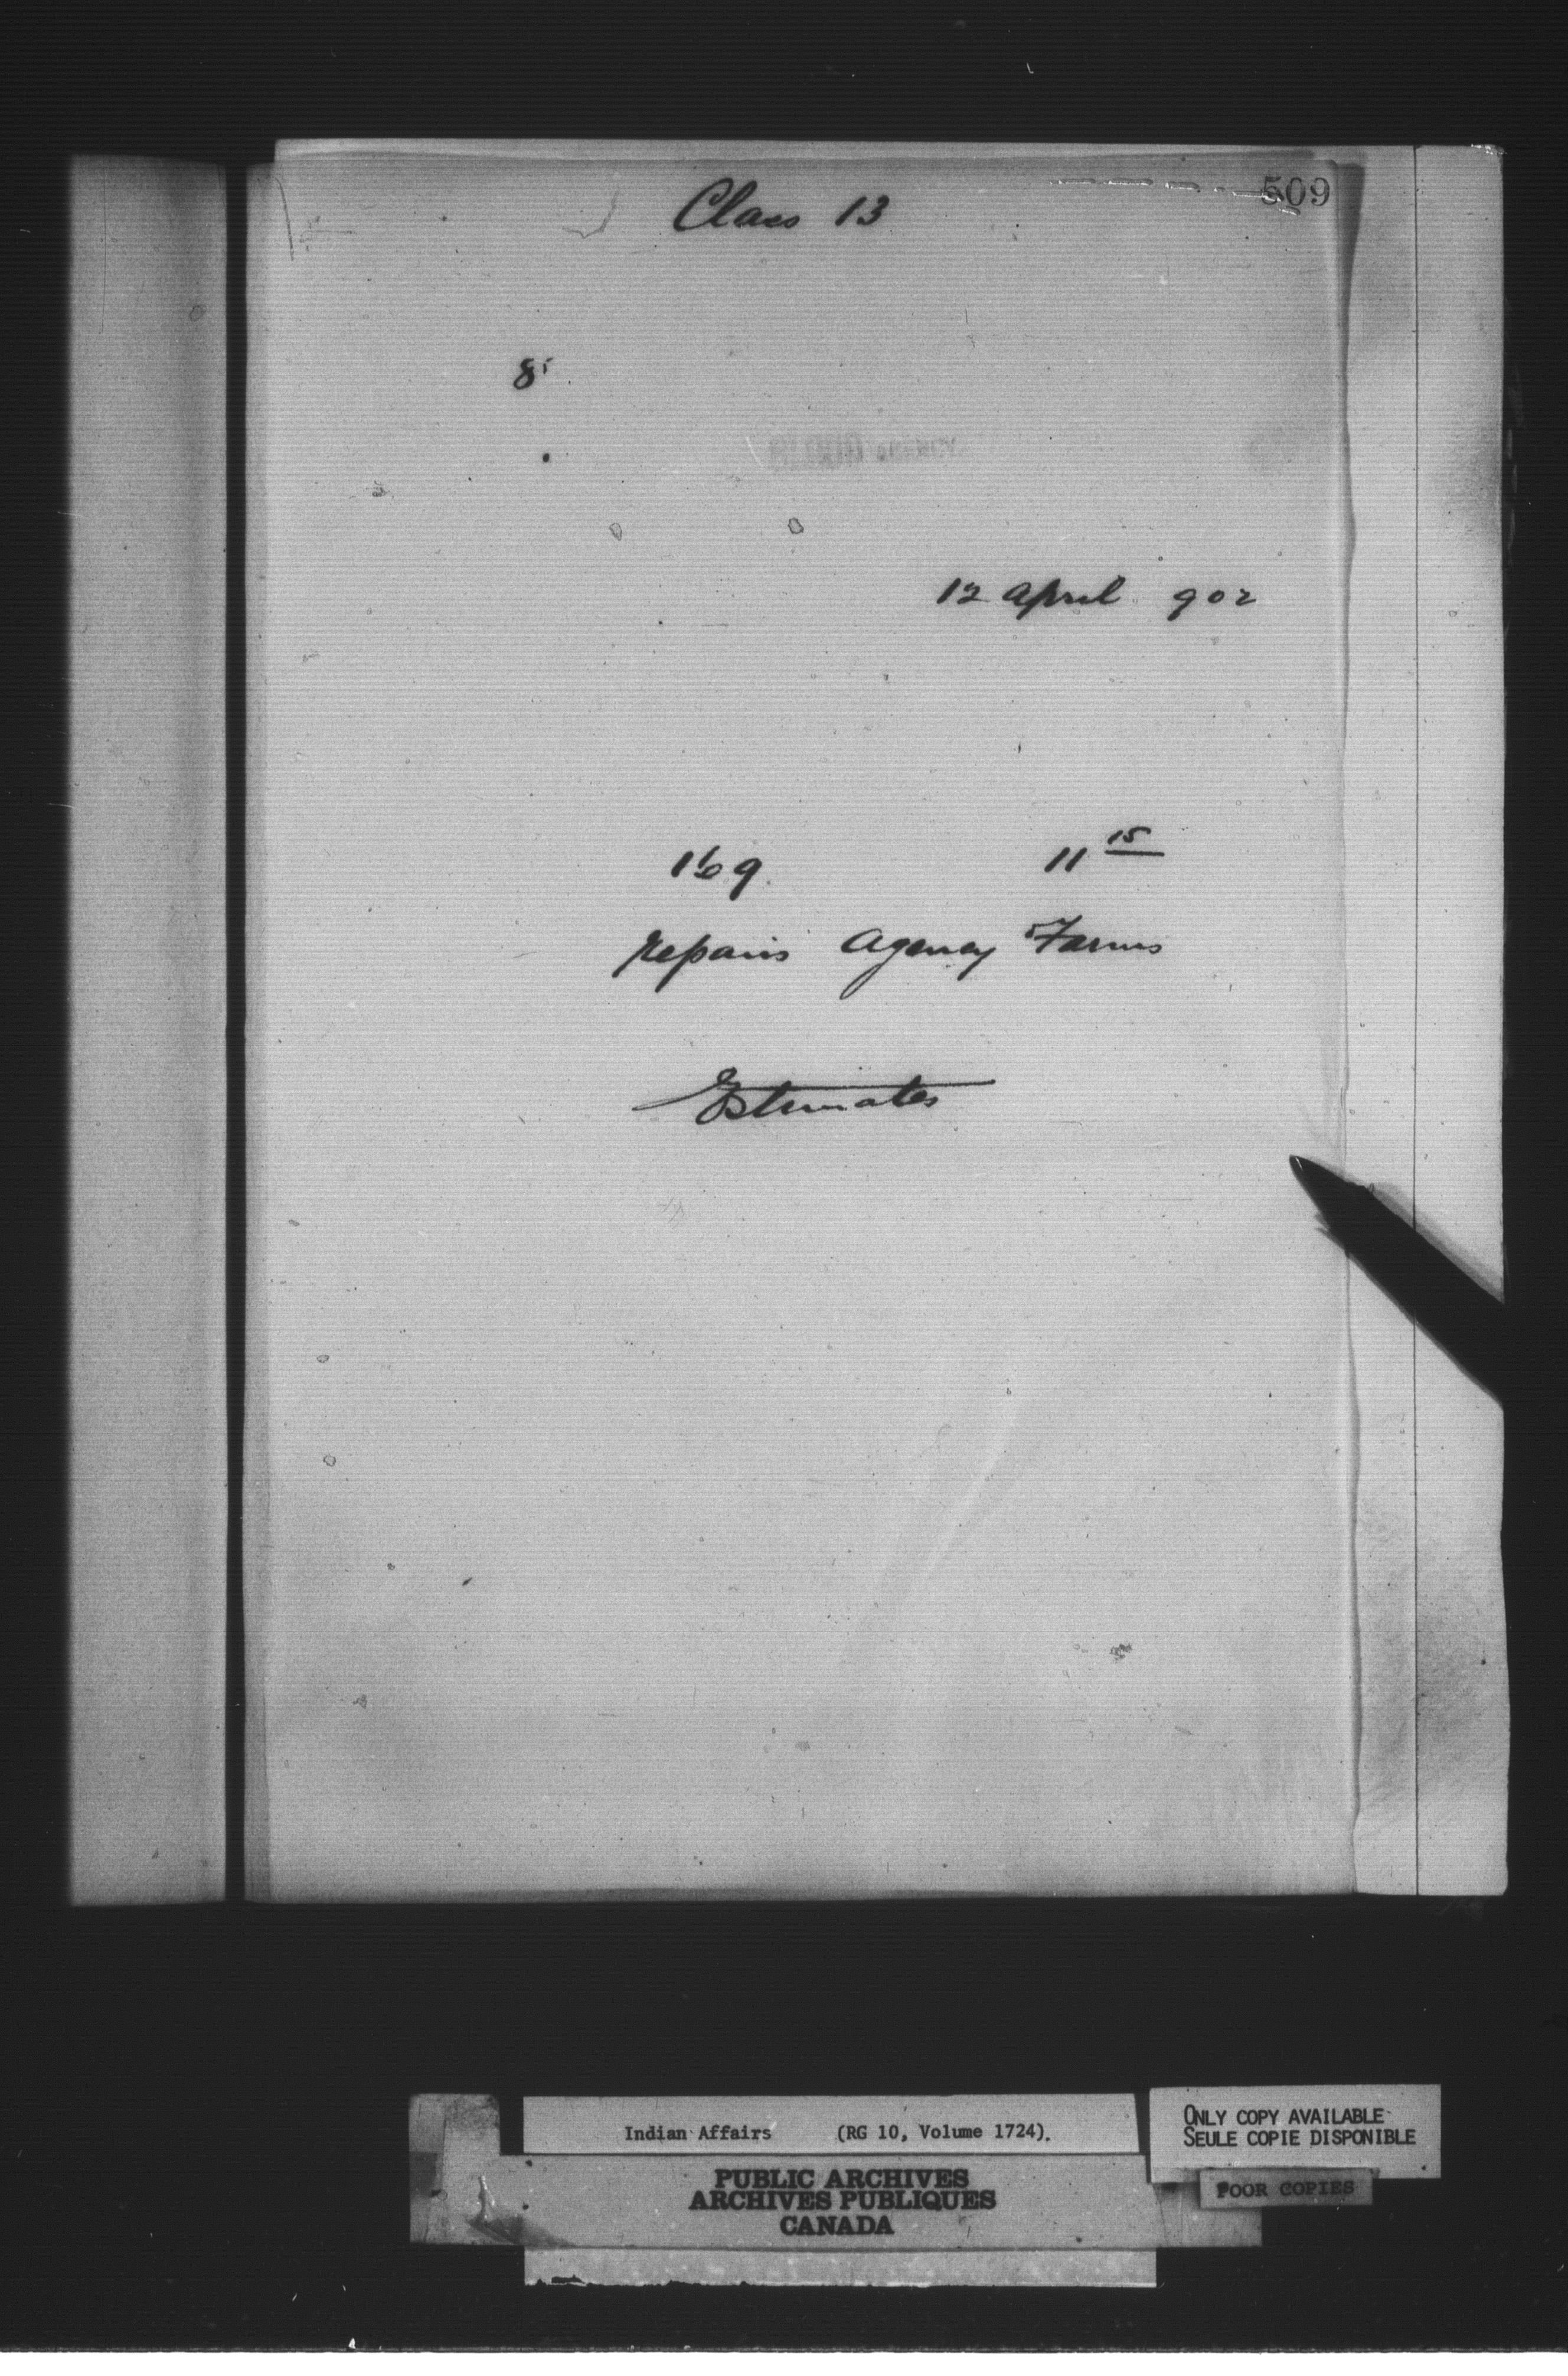 509
Class 13
8
BLOOD AGENCY.
12 April 902
169 11 15
Repairs Agency Farms
Estimates
Indian Affairs (RG 10, Volume 1724).
PUBLIC ARCHIVES
ARCHIVES PUBLIQUES
CANADA
ONLY COPY AVAILABLE
SEULE COPIE DISPONIBLE
POOR COPIES